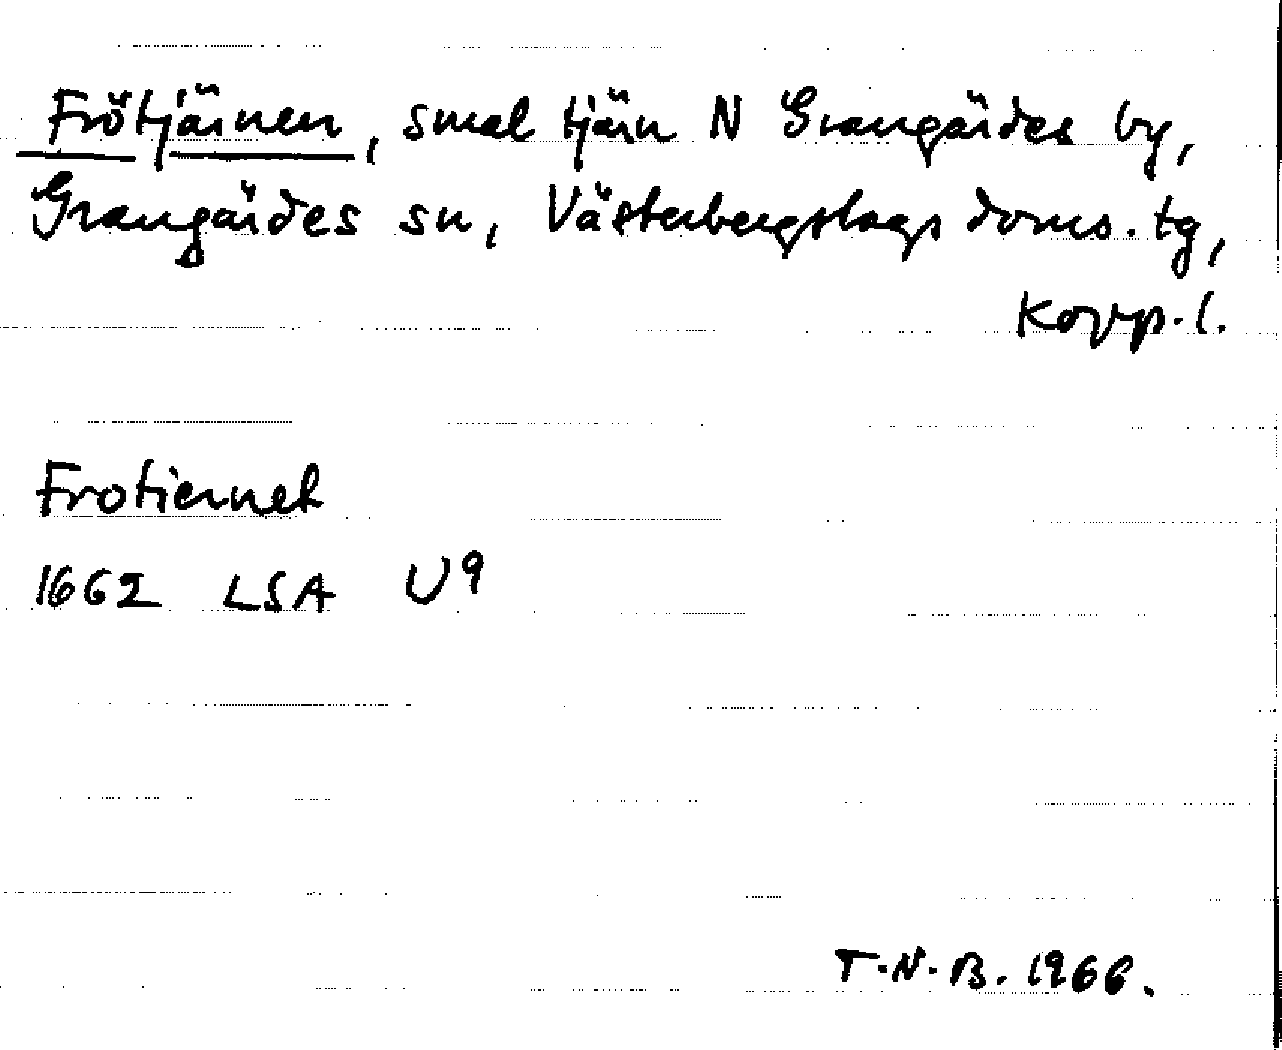 Frötjärnen, smal tjärn N Grangärdes by,
Grangärdes sn, Västerbergslags doms. tg,
Kopp. l.
Frotiernet
1662 LSA U9
T.N.B. 1966.